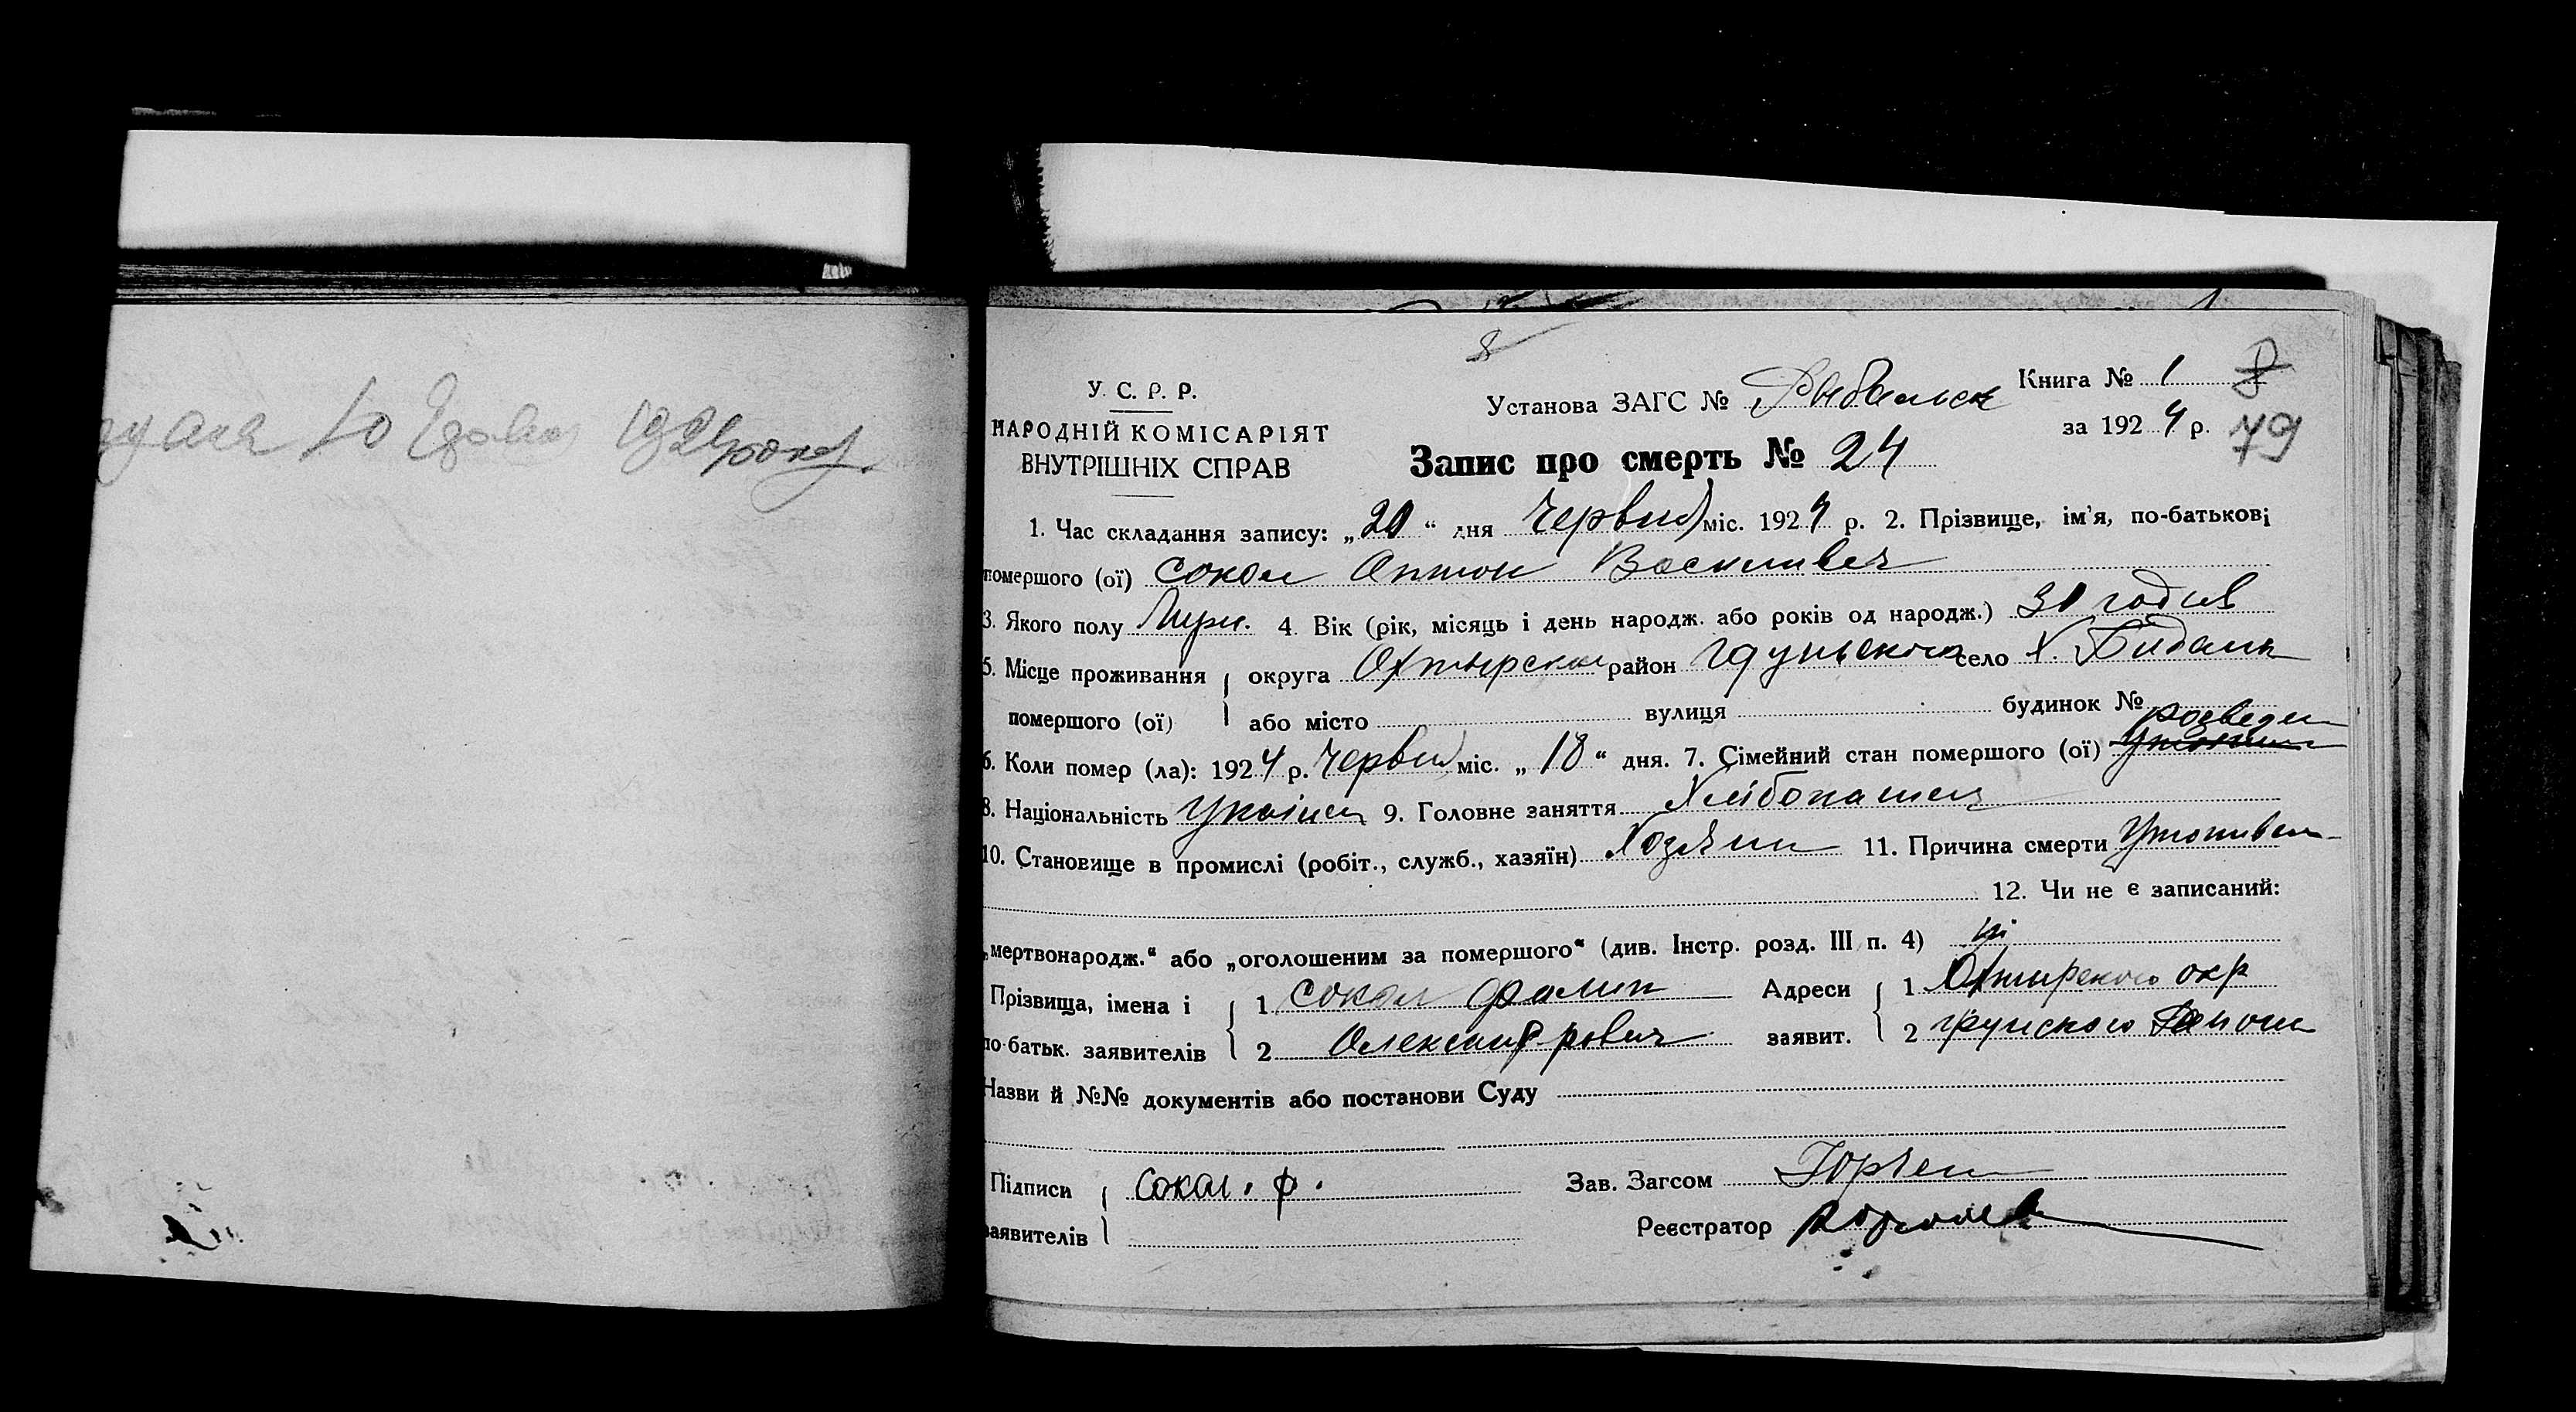 1924 року.
8
У. С. Р. Р.
НАРОДНІЙ КОМІСАРІЯТ
ВНУТРІШНІХ СПРАВ
Установа ЗАГС № Рыбальск
Книга № 1
за 1924 р.
79
Запис про смерть № 24
1. Час складання запису: „20“ дня Червня міс. 1924 р. 2. Прізвище, ім'я, по-батькові
помершого (ої) Сокол Антон Василивич
3. Якого полу Муж. 4. Вік (рік, місяць і день народж. або років од народж.) 31 годив
5. Місце проживання помершого (ої) округа Охтырской район село Х.
або місто вулиця будинок №
6. Коли помер (ла): 1924 р. Червня міс. „18“ дня. 7. Сімейний стан помершого (ої) розведен
8. Національність Украінец 9. Головне заняття Хлібопашец
10. Становище в промислі (робіт., служб., хазяїн) Хозяин 11. Причина смерти Утопивен
12. Чи не є записаний:
„мертвонародж.“ або „оголошеним за помершого“ (див. Інстр. розд. III п. 4) ні
Прізвища, імена і по-батьк. заявителів 1 Сокол
2 Олександрович
Адреси заявит. 1 Охтирского окр
2 грунского
Назви й №№ документів або постанови Суду
Підписи заявителів Сокол. Ф.
Зав. Загсом
Реєстратор